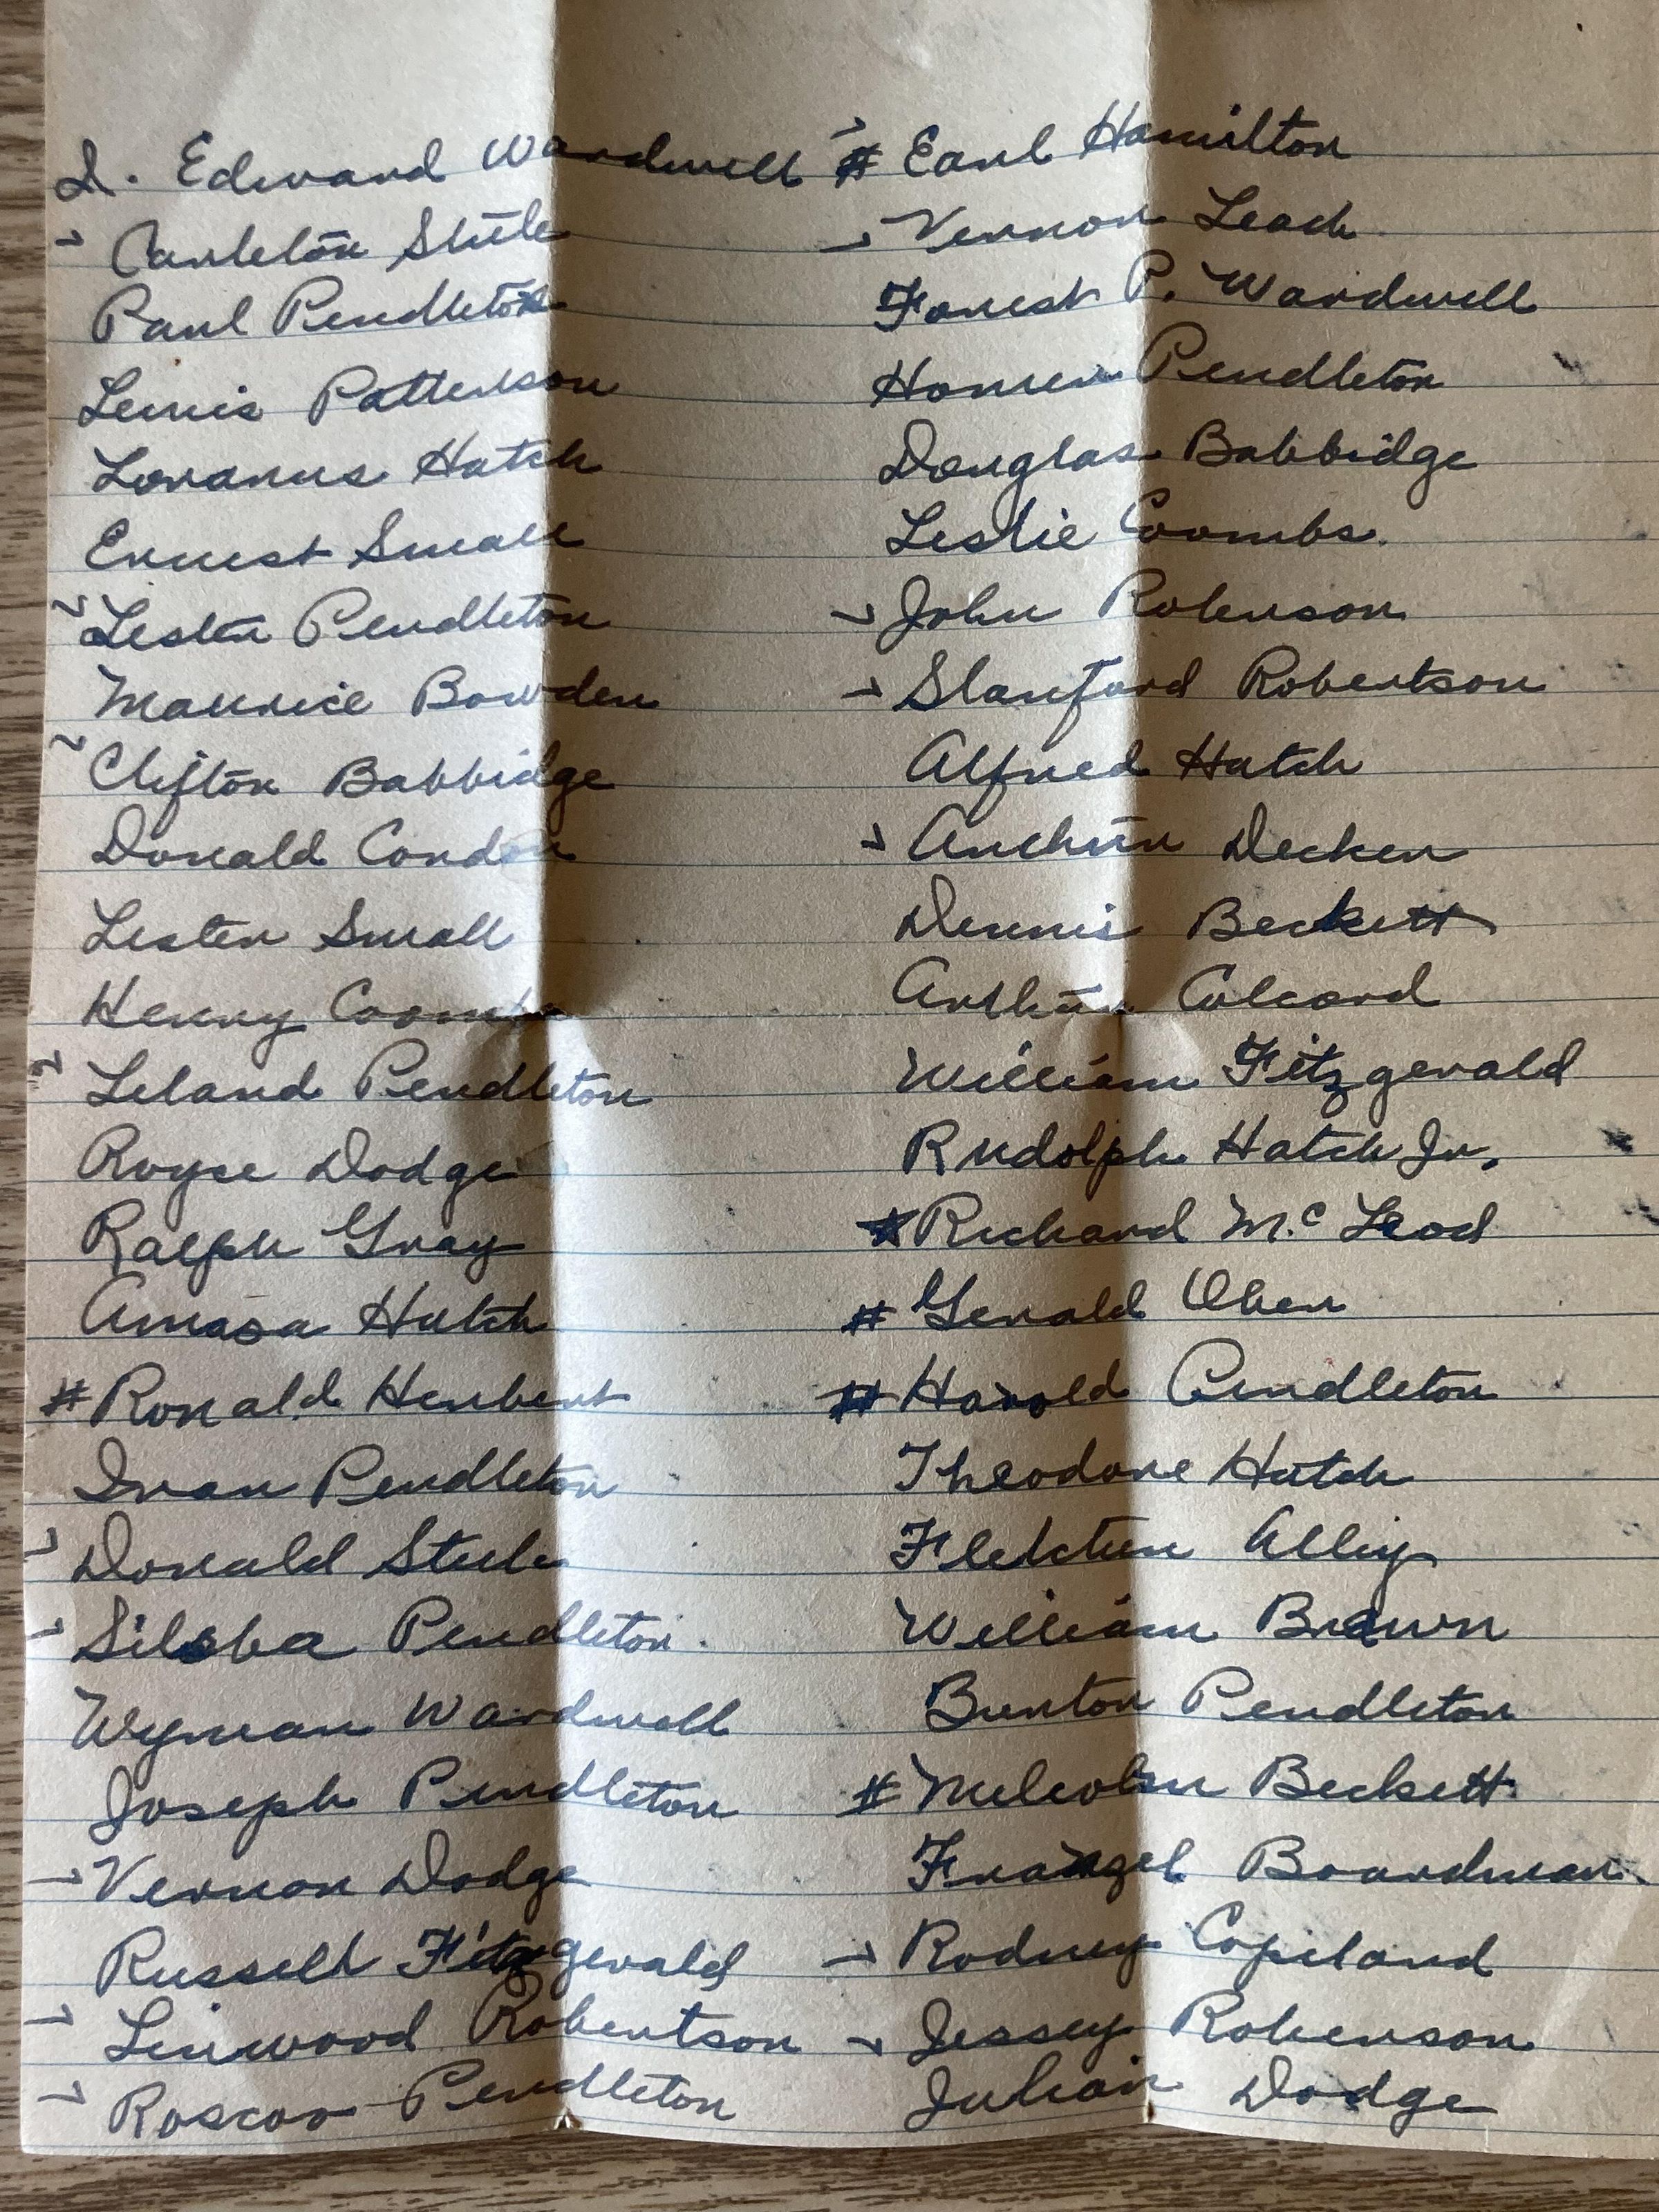 S. Edward Wardwell
Carleton Stule
Paul Pendleton
Lewis Patterson
Loranus Hatch
Ernest Small
Lester Pendleton
Maurice Bowden
Clifton Babbidge
Donald Condon
Lester Small
Henry Coombs
Leland Pendleton
Royce Dodge
Ralph Gray
Amasa Hatch
# Ronald Herbert
Ivan Pendleton
Donald Steele
Silsba Pendleton
Wyman Wardwell
Joseph Pendleton
Vernon Dodge
Russell Fitzgerald
Linwood Robertson
Roscoe Pendleton
# Earl Hamilton
Vernon Leach
Forest P. Wardwell
Homer Pendleton
Douglas Babbidge
Leslie Coombs.
John Roberson
Stanford Robertson
Alfred Hatch
Decker
Dennis Beckett
Arthur Colcord
William Fitzgerald
Rudolph Hatch Jr.
# Richard Mc Leod
# Gerald Ober
# Harold Pendleton
Theodore Hatch
Fletcher Alley
William Brown
Burton Pendleton
# Melcolm Beckett
Boardman
Rodney Copeland
Jessey Roberson
Julian Dodge